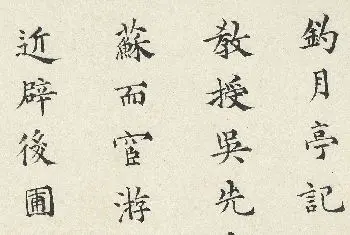 釣月亭記
教授吳先
蘇而宦游
近辟後圃